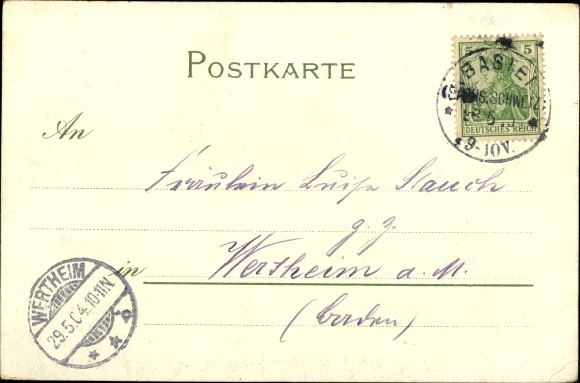 POSTKARTE
5 5
BASTEI
SÄCHS. SCHWEIZ
28 5
9-10V.
DEUTSCHES REICH
An
Fräulein Luise Rauch
z. Z.
in Wertheim a. M.
(Baden)
WERTHEIM
29.5.04.10-11N